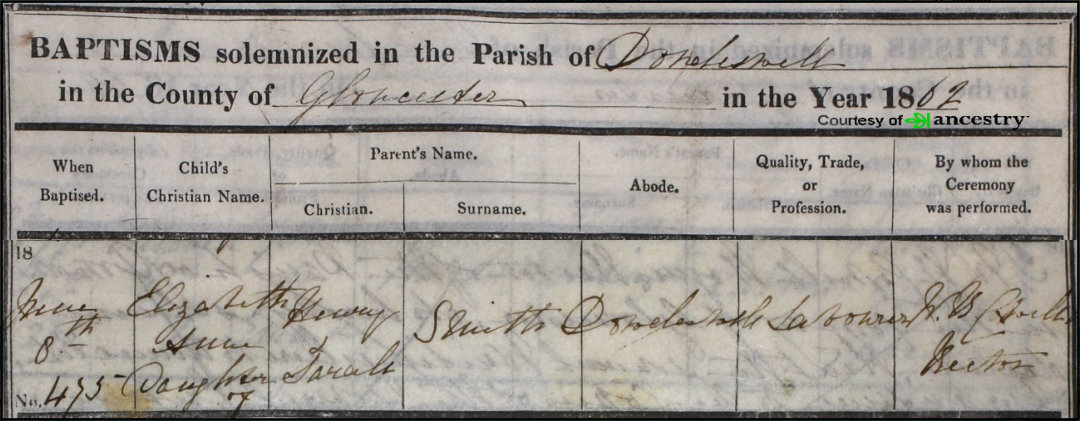 BAPTISMS solemnized in the Parish of Dowdeswell
in the County of Gloucester in the Year 1862
Courtesy of ancestry
When Baptised.
Child's Christian Name.
Parent's Name.
Christian.
Surname.
Abode.
Quality, Trade, or Profession.
By whom the Ceremony was performed.
18
June 8th
Elizabeth Anne Daughter of
Henry Sarah
Smith
Dowdeswell
Labourer
Rector
No. 475